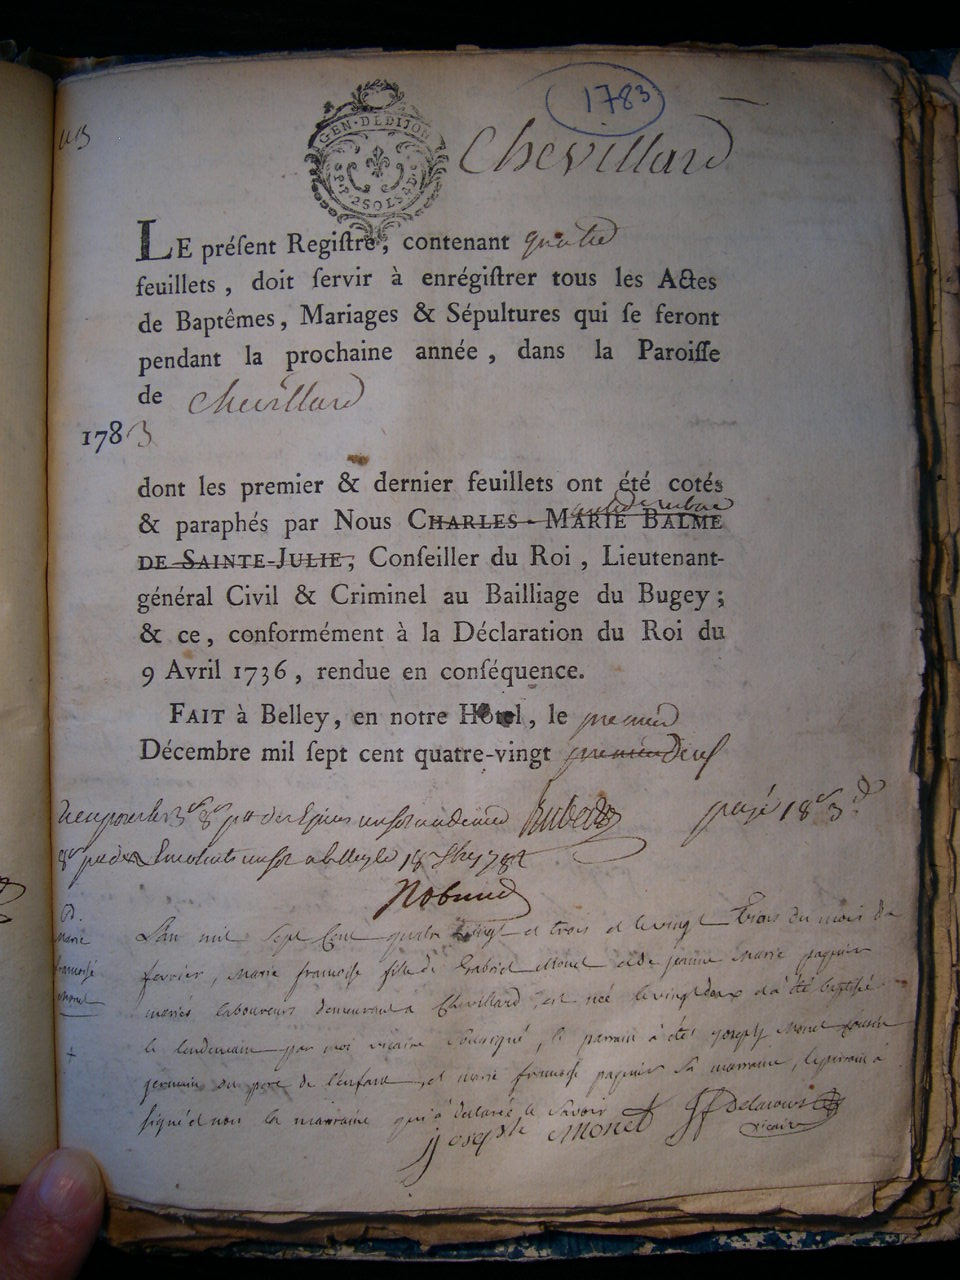 1783
GEN·DE DIJON
2 SOLS 4 D.
Chevillard
LE préſent Regiſtre, contenant quatre
feuillets, doit ſervir à enrégiſtrer tous les Actes
de Baptêmes, Mariages & Sépultures qui ſe feront
pendant la prochaine année, dans la Paroiſſe
de Chevillard
1783
dont les premier & dernier feuillets ont été cotés
& paraphés par Nous CHARLES-MARIE BALME
DE SAINTE-JULIE, Conſeiller du Roi, Lieutenant-
général Civil & Criminel au Bailliage du Bugey;
& ce, conformément à la Déclaration du Roi du
9 Avril 1736, rendue en conſéquence.
FAIT à Belley, en notre Hôtel, le premier
Décembre mil ſept cent quatre-vingt premier deux
payé 18 3
B.
Marie
francoise
Monet
L'an mil sept Cent quatre vingt et trois et le vingt Trois du mois de
fevrier, Marie francoise fille de Gabriel Monet et de jeanne Marie pagnier
mariés laboureurs demeurant a Chevillard, est née le vingt deux et a été baptisée
le lendemain par moi vicaire soussigné, le parrain à été joseph Monet cousin
germain du pere de l'enfant, et marie francoise pagnier sa marraine, le parrain a
signé et non la marraine qui à declaré le savoir
joseph Monet Delacour
vicaire